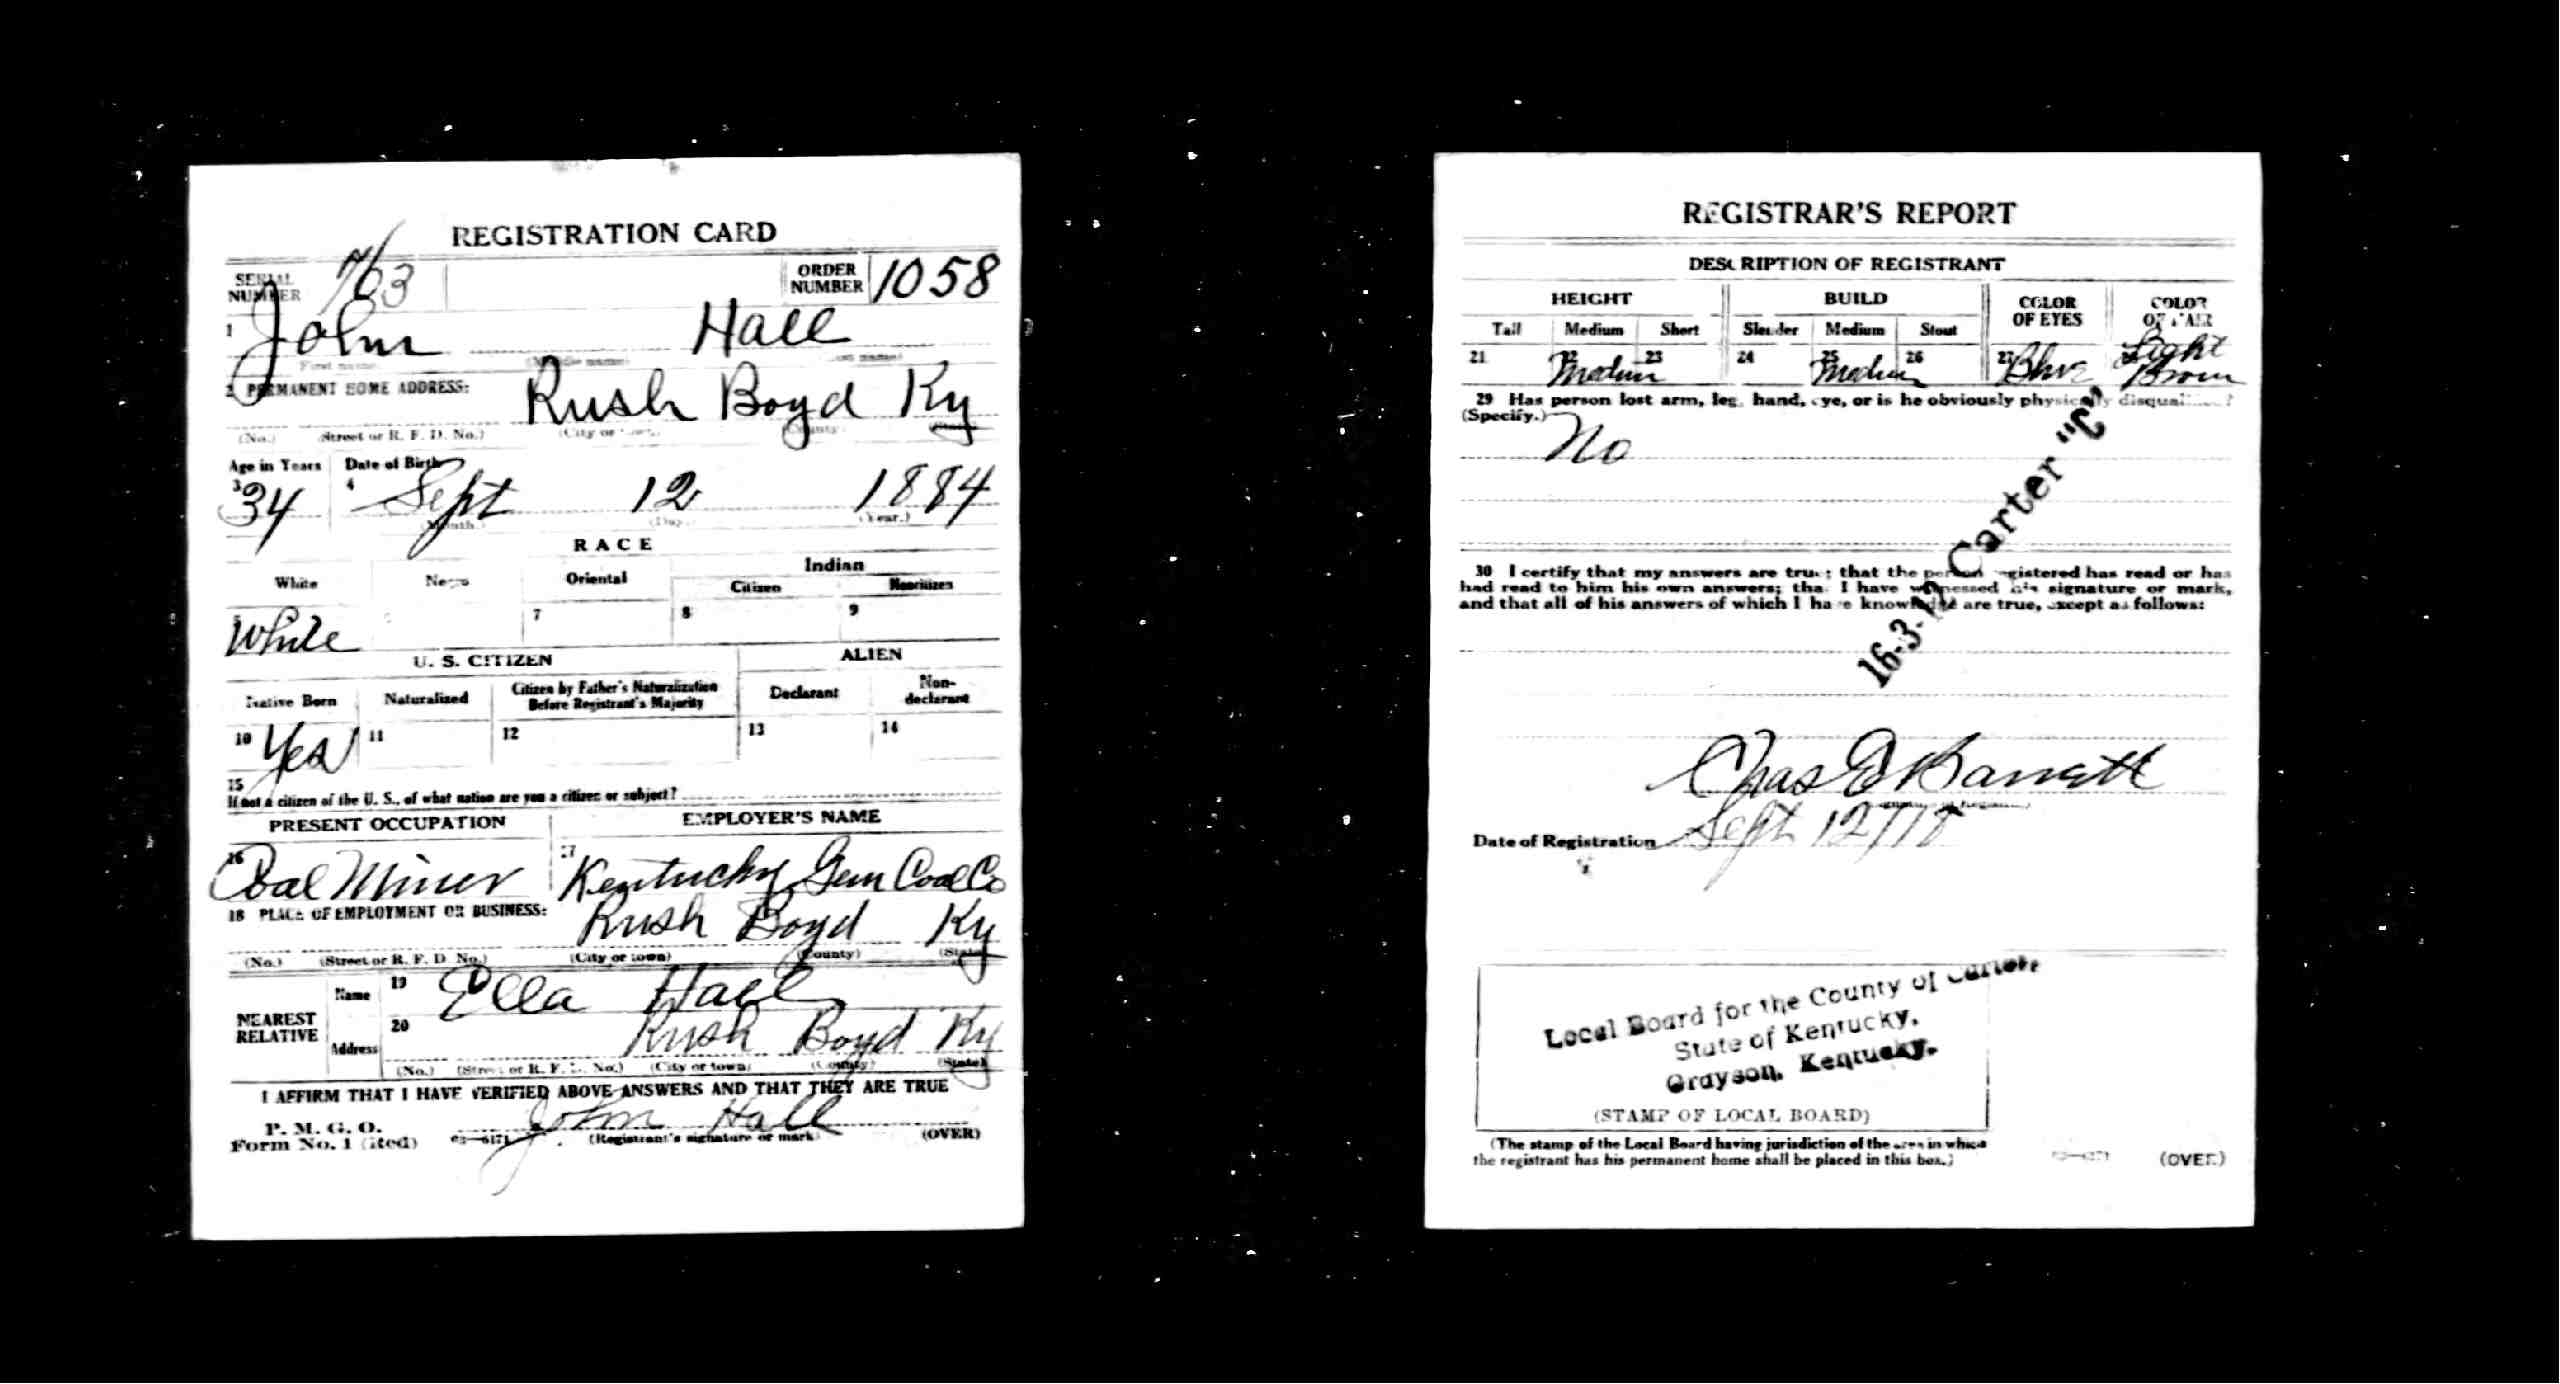 REGISTRATION CARD
SERIAL NUMBER
ORDER NUMBER 1058
1 John Hall
(First name) (Middle name) (Last name)
2 PERMANENT HOME ADDRESS: Rush Boyd Ky
(No.) (Street or R. F. D. No.) (City or town) (County) (State)
Age in Years Date of Birth
3 34 4 Sept 12 1884
(Month.) (Day.) (Year.)
RACE
White Negro Oriental Indian
Citizen Noncitizen
5 White 7 8 9
U. S. CITIZEN ALIEN
Native Born Naturalized Citizen by Father's Naturalization Before Registrant's Majority Declarant Non-declarant
10 Yes 11 12 13 14
15
If not a citizen of the U. S., of what nation are you a citizen or subject?
PRESENT OCCUPATION EMPLOYER'S NAME
16 Coal Miner 17 Kentucky Gem Coal Co
18 PLACE OF EMPLOYMENT OR BUSINESS: Rush Boyd Ky
(No.) (Street or R. F. D. No.) (City or town) (County) (State)
NEAREST RELATIVE
Name 19 Ella Hall
Address 20 Rush Boyd Ky
(No.) (Street or R. F. D. No.) (City or town) (County) (State)
I AFFIRM THAT I HAVE VERIFIED ABOVE ANSWERS AND THAT THEY ARE TRUE
P. M. G. O.
Form No. 1 (Red) John Hall
(Registrant's signature or mark) (OVER)
REGISTRAR'S REPORT
DESCRIPTION OF REGISTRANT
HEIGHT BUILD COLOR OF EYES COLOR OF HAIR
Tall Medium Short Slender Medium Stout
21 22 Medium 23 24 25 Medium 26 27 Blue Light Brown
29 Has person lost arm, leg, hand, eye, or is he obviously physically disqualified?
(Specify.) No
30 I certify that my answers are true; that the person registered has read or has
had read to him his own answers; that I have witnessed his signature or mark,
and that all of his answers of which I have knowledge are true, except as follows:
Carter "C"
Chas Barrett
Date of Registration Sept 12/18
Local Board for the County of Carter,
State of Kentucky,
Grayson, Kentucky.
(STAMP OF LOCAL BOARD)
(The stamp of the Local Board having jurisdiction of the area in which
the registrant has his permanent home shall be placed in this box.)
(OVER)